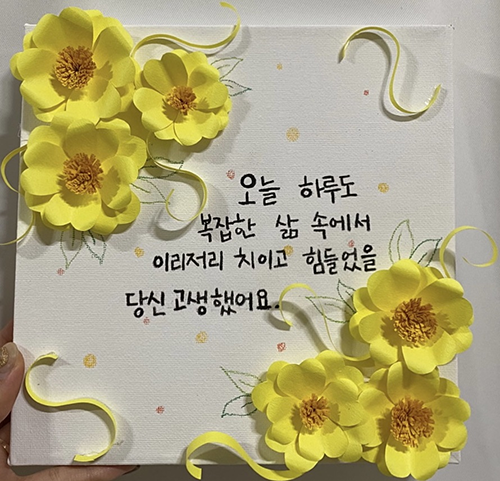 오늘 하루도
복잡한 삶 속에서
이리저리 치이고 힘들었을
당신 고생했어요.